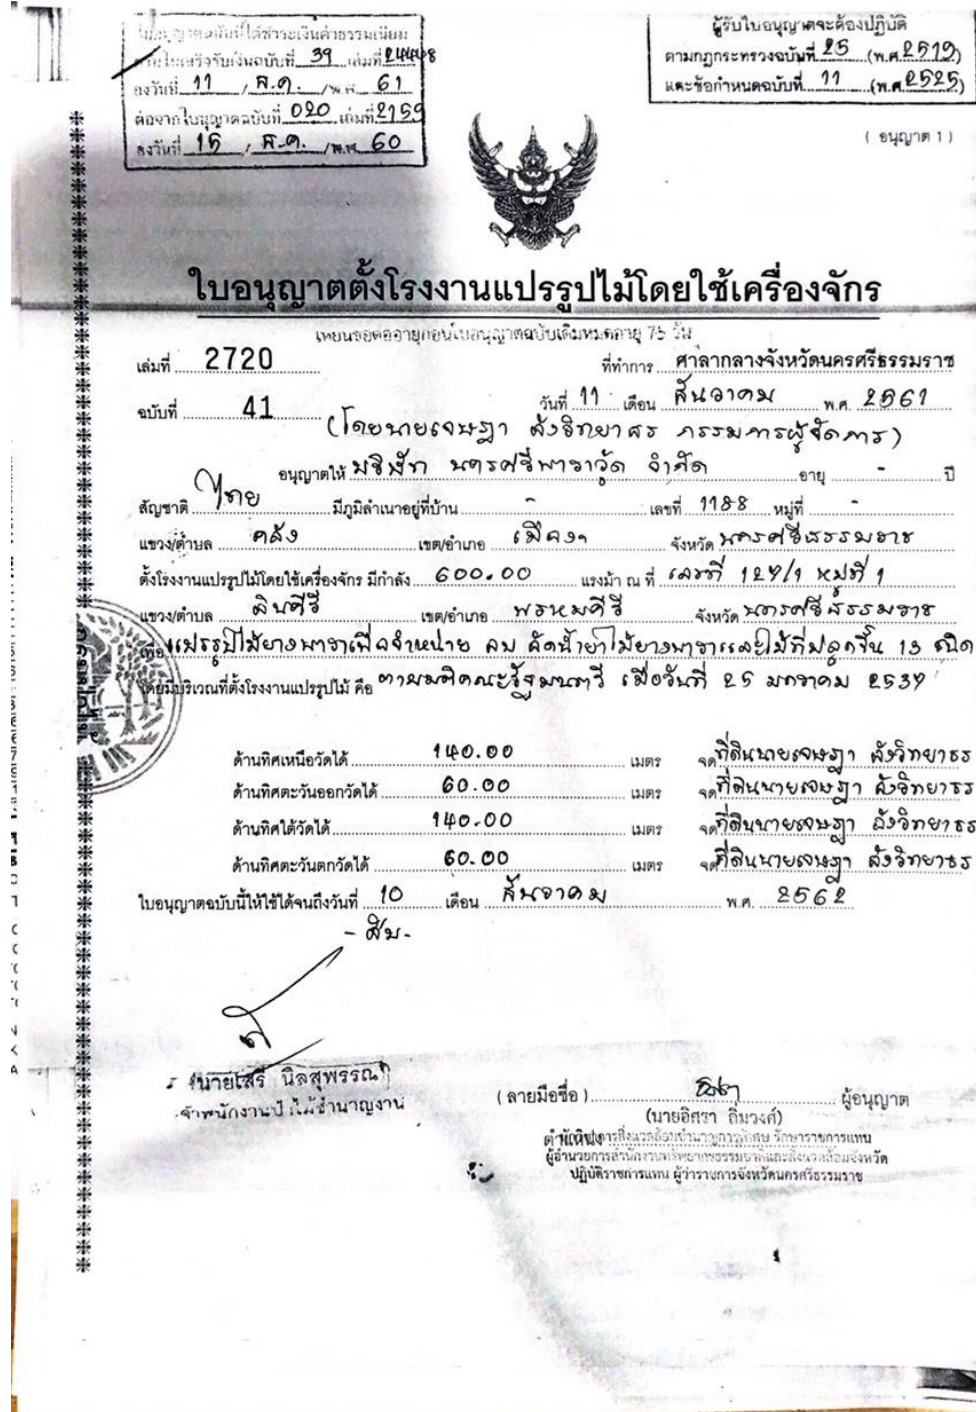 ใบอนุญาตฉบับนี้ได้ชำระเงินค่าธรรมเนียม
ตามใบเสร็จรับเงินฉบับที่ 39 เล่มที่ 24448
ลงวันที่ 11 / ธ.ค. / พ.ศ. 61
ต่อจากใบอนุญาตฉบับที่ 020 เล่มที่ 2159
ลงวันที่ 15 / ธ.ค. / พ.ศ. 60
ผู้รับใบอนุญาตจะต้องปฏิบัติ
ตามกฎกระทรวงฉบับที่ 25 (พ.ศ. 2519)
และข้อกำหนดฉบับที่ 11 (พ.ศ. 2525)
( อนุญาต 1 )
ใบอนุญาตตั้งโรงงานแปรรูปไม้โดยใช้เครื่องจักร
เล่มที่ 2720 ที่ทำการ ศาลากลางจังหวัดนครศรีธรรมราช
ฉบับที่ 41 วันที่ 11 เดือน ธันวาคม พ.ศ. 2561
(โดยนายเจษฎา สังวิทยาธร กรรมการผู้จัดการ)
อนุญาตให้ บริษัท นครศรีพาราวู้ด จำกัด อายุ - ปี
สัญชาติ ไทย มีภูมิลำเนาอยู่ที่บ้าน - เลขที่ 1188 หมู่ที่ -
แขวง/ตำบล คลัง เขต/อำเภอ เมืองฯ จังหวัด นครศรีธรรมราช
ตั้งโรงงานแปรรูปไม้โดยใช้เครื่องจักร มีกำลัง 600.00 แรงม้า ณ ที่ เลขที่ 129/1 หมู่ที่ 1
แขวง/ตำบล อินคีรี เขต/อำเภอ พรหมคีรี จังหวัด นครศรีธรรมราช
เพื่อ แปรรูปไม้ยางพาราเพื่อจำหน่าย อบ อัดน้ำยาไม้ยางพาราและไม้ที่ปลูกขึ้น 13 ชนิด
โดยมีบริเวณที่ตั้งโรงงานแปรรูปไม้ คือ ตามมติคณะรัฐมนตรี เมื่อวันที่ 25 มกราคม 2537
ด้านทิศเหนือวัดได้ 140.00 เมตร จด ที่ดินนายเจษฎา สังวิทยาธร
ด้านทิศตะวันออกวัดได้ 60.00 เมตร จด ที่ดินนายเจษฎา สังวิทยาธร
ด้านทิศใต้วัดได้ 140.00 เมตร จด ที่ดินนายเจษฎา สังวิทยาธร
ด้านทิศตะวันตกวัดได้ 60.00 เมตร จด ที่ดินนายเจษฎา สังวิทยาธร
ใบอนุญาตฉบับนี้ให้ใช้ได้จนถึงวันที่ 10 เดือน ธันวาคม พ.ศ. 2562
- สิบ -
(นายเสรี นิลสุพรรณ)
เจ้าพนักงานป่าไม้ชำนาญงาน
( ลายมือชื่อ ) ผู้อนุญาต
(นายอิศรา ถิ่มวงศ์)
รักษาราชการแทน
ผู้อำนวยการสำนักงานทรัพยากรธรรมชาติและสิ่งแวดล้อมจังหวัด
ปฏิบัติราชการแทน ผู้ว่าราชการจังหวัดนครศรีธรรมราช